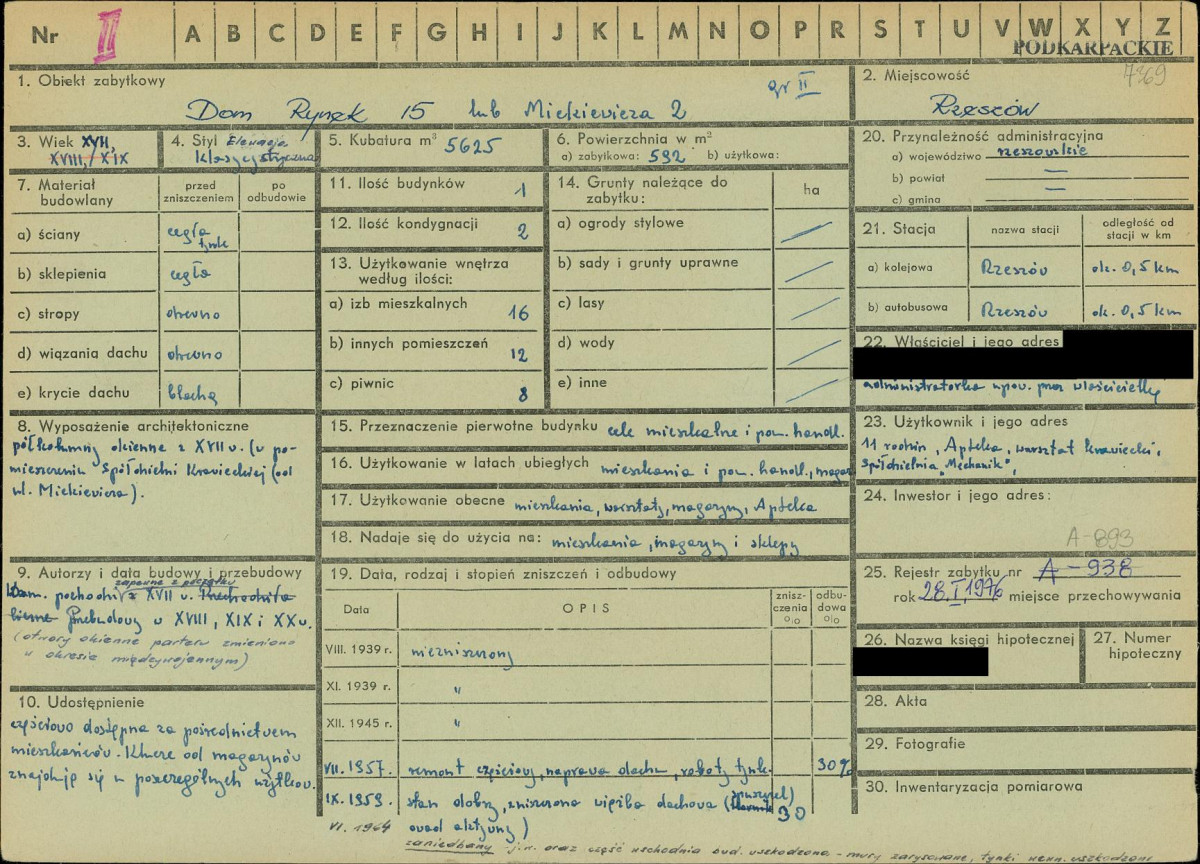 Nr II A B C D E F G H I J K L M N O P R S T U V W X Y Z
PODKARPACKIE
1. Obiekt zabytkowy
gr II
Dom Rynek 15 lub Mickiewicza 2
2. Miejscowość 7369
Rzeszów
3. Wiek XVII,
XVIII, XIX
4. Styl Elewacja
klasycystyczna
5. Kubatura m³ 5625
6. Powierzchnia w m²
a) zabytkowa: 592 b) użytkowa:
20. Przynależność administracyjna
a) województwo rzeszowskie
b) powiat
c) gmina
7. Materiał budowlany
przed zniszczeniem
po odbudowie
a) ściany cegła tynk
b) sklepienia cegła
c) stropy drewno
d) wiązania dachu drewno
e) krycie dachu blacha
11. Ilość budynków 1
12. Ilość kondygnacji 2
13. Użytkowanie wnętrza
według ilości:
a) izb mieszkalnych 16
b) innych pomieszczeń 12
c) piwnic 8
14. Grunty należące do
zabytku:
ha
a) ogrody stylowe
b) sady i grunty uprawne
c) lasy
d) wody
e) inne
21. Stacja
nazwa stacji
odległość od
stacji w km
a) kolejowa Rzeszów ok. 0,5 km
b) autobusowa Rzeszów ok. 0,5 km
22. Właściciel i jego adres
administratorka upow. przez właścicielkę
8. Wyposażenie architektoniczne
półkolumny okienne z XVII w. (w po-
mieszczeniu Spółdzielni Krawieckiej (od
ul. Mickiewicza).
15. Przeznaczenie pierwotne budynku cele mieszkalne i pom. handl.
16. Użytkowanie w latach ubiegłych mieszkania i pom. handl., magaz
17. Użytkowanie obecne mieszkania, warsztaty, magazyny, Apteka
18. Nadaje się do użycia na: mieszkania, magazyny i sklepy
23. Użytkownik i jego adres
11 rodzin, Apteka, warsztat krawiecki,
spółdzielnia "Mechanik",
24. Inwestor i jego adres:
A-893
9. Autorzy i data budowy i przebudowy
zapewne z początku
Dom. pochodzi z XVII w.
Przebudowy w XVIII, XIX i XX w.
(otwory okienne parteru zmieniono
w okresie międzywojennym)
19. Data, rodzaj i stopień zniszczeń i odbudowy
Data
OPIS
znisz-
czenia
%
odbu-
dowa
%
VIII. 1939 r. niezniszczony
XI. 1939 r. "
XII. 1945 r. "
VII. 1957. remont częściowy, naprawa dachu, roboty tynk. 30%
IX. 1959. stan dobry, zniszczona więźba dachowa (spuszczel) 30
owad aktywny)
VI. 1964 zaniedbany j.n. oraz część wschodnia bud. uszkodzona - mury zarysowane, tynki wewn. uszkodzone
25. Rejestr zabytku nr A-938
rok 28.I.1976 miejsce przechowywania
26. Nazwa księgi hipotecznej
27. Numer
hipoteczny
10. Udostępnienie
częściowo dostępna za pośrednictwem
mieszkańców. Klucze od magazynów
znajdują się u poszczególnych użytkow.
28. Akta
29. Fotografie
30. Inwentaryzacja pomiarowa